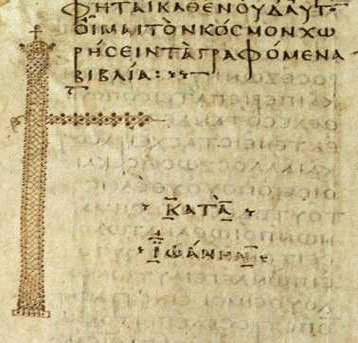 ΦΗΤΑΙΚΑΘΕΝΟΥΔΑΥΤ
ΟΙΜΑΙΤΟΝΚΟϹΜΟΝΧΩ
ΡΗϹΕΙΝΤΑΓΡΑΦΟΜΕΝΑ
ΒΙΒΛΙΑ:
ΚΑΤΑ
ΪΩΑΝΗΝ